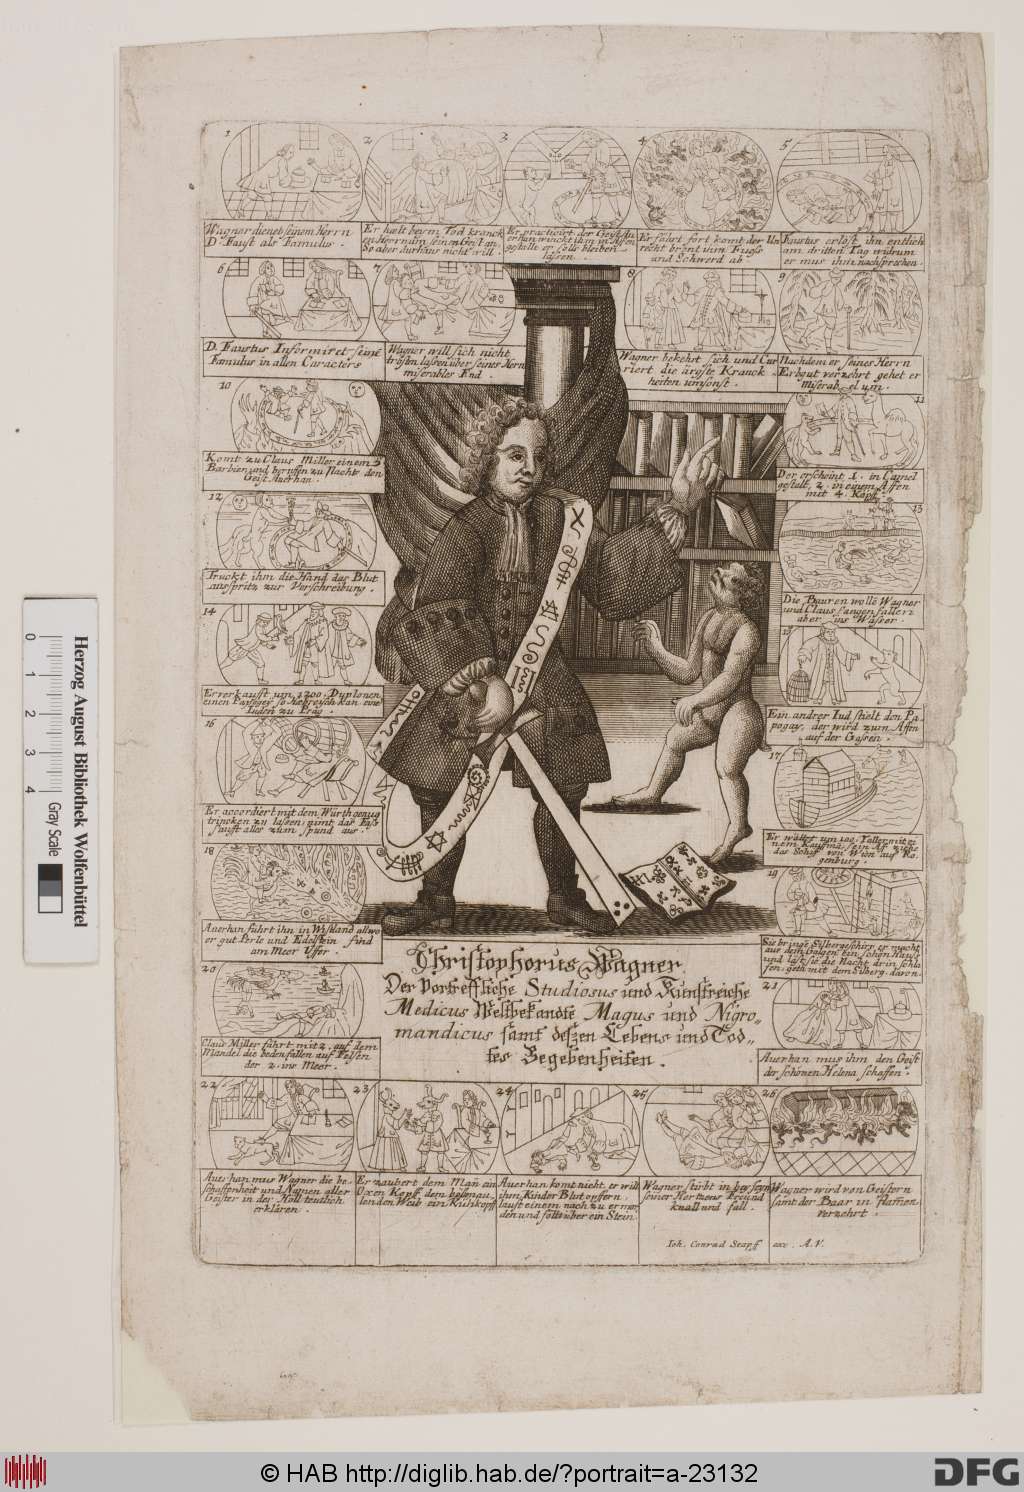 1
Wagner dienet seinem Herrn
D. Faust als Famulus.
2
Er hælt beym Tod kranck
en Herrn um seinen Geist an,
der aber durchaus nicht will.
3
Er practiciert der Geist Au
erhan winckt ihm in Affen
gestalt er solls bleiben
lassen.
4
Er fährt fort komt der Un
recht brent ihm Fuess
und Schwerd ab
5
Faustus erlöst ihn entlich
am dritten Tag widrum
er mus ihm nachsprechen.
6
D. Faustus Informiret seinē
Famulus in allen Caracters
7
Wagner will sich nicht
trösten lassen über seines Herrn
miserables End.
8
Wagner bekehrt sich und Cur
riert die ärgste Kranck
heiten umsonst.
9
Nachdem er seines Herrn
Erbgut verzehrt gehet er
miserabel um.
10
Komt zu Claus Miller einem
Barbier und beruffen zu Nachts den
Geist Auerhan.
11
Der erscheint 1. in Camel
gestalt 2. in einem Affen
mit 4. Köpff.
12
Truckt ihm die Hand das Blut
ausspritz zur Verschreibung.
13
Die Bauren wollē Wagner
und Claus fangen fallen
aber ins Wasser.
14
Er verkaufft um 1200. Duplonen
einen Papagey so Hebreysch kan eine
Juden zu Prag.
15
Ein andrer Iud stielt den Pa
pogay, der wird zum Affen
auf der Gassen.
16
Er accordiert mit dem Würth genug
trincken zu lassen, nimt das Fass
saufft alles zum spund aus.
17
Er wættet um 100. Taller mit ei
nem Kaufma, sein Aff ziehe
das Schiff von Wien auf Re
genburg.
18
Auerhan führt ihn in Wisland allwo
er gut Perle und Edelstein find
am Meer Uffer
19
Sie bringē Silbergeschirr, er macht
aus dem Galgen ein schön Hauss
und last sie die Nacht drin schla
fen, geth mit dem Silberg. daron.
20
Claus Miller fährt mit 2. auf dem
Mandel die beden fallen auf Felsen
der 2. ins Meer.
21
Auerhan mus ihm den Geist
der schönen Helena schaffen.
Christophorus Wagner
Der Vortreffliche Studiosus und Kunstreiche
Medicus Weltbekandte Magus und Nigro„
mandicus samt deszen Lebens und Tod„
tes Begebenheiten.
22
Auerhan mus Wagner die be„
schaffenheit und Namen aller
Geister in der Höll teutlich
erklären.
23
Er zaubert dem Mañ ein
Oxen Kopf dem
Weib ein Kuhkopff
24
Auerhan komt nicht, er will
ihm Kinder Blut opffern,
lauft einem nach zu ermor
den und fällt über ein Stein
25
Wagner stirbt in
seiner Hertzens Freund
knall und fall.
26
Wagner wird von Geistern
samt der Baar in flamen
verzehrt.
Ioh. Conrad Stapff exc. A.V.
0 1 2 3 4
Gray Scale
Herzog August Bibliothek Wolfenbüttel
© HAB http://diglib.hab.de/?portrait=a-23132
DFG